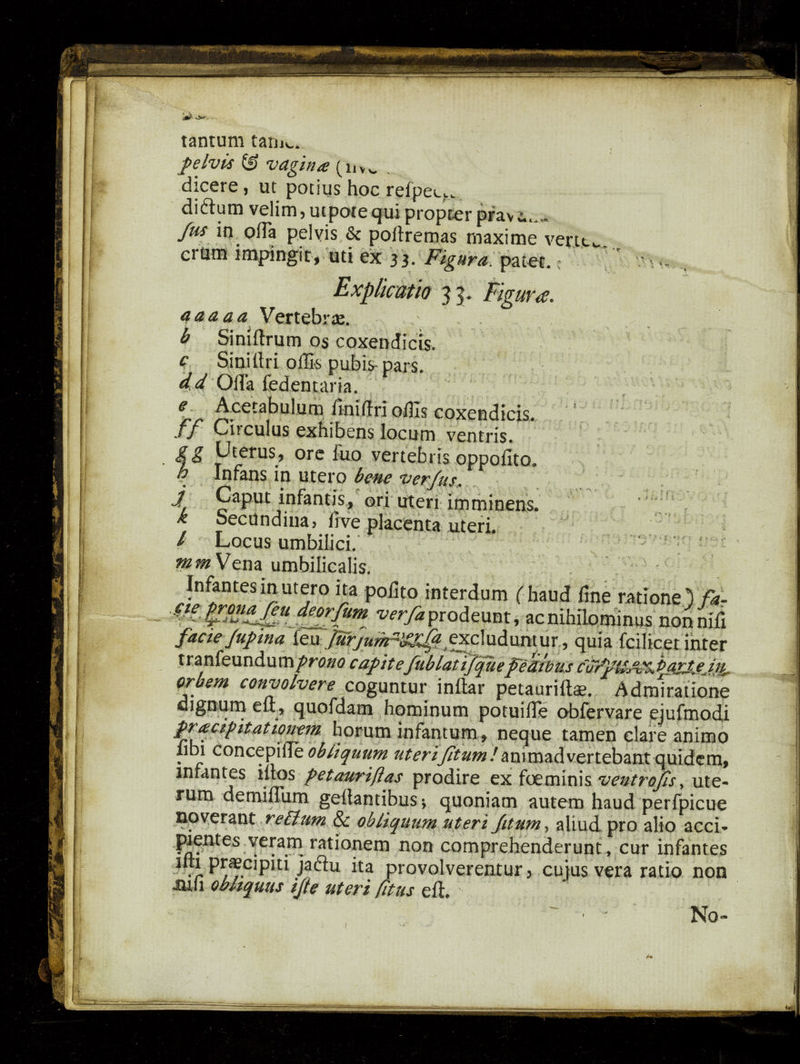 tantum
pelvis & vaginæ
dicere, ut potius hoc
dictum velim, utpote qui propter
ſus in oſſa pelvis & poſtremas maxime
crum impingit, uti ex 33. Figura. patet.
Explicatio 33. Figuræ.
a a a a a Vertebræ.
b Siniſtrum os coxendicis.
c Siniſtri oſſis pubis pars.
d d Oſſa ſedentaria.
e Acetabulum ſiniſtri oſſis coxendicis.
f f Circulus exhibens locum ventris.
g g Uterus, ore ſuo vertebris oppoſito.
h Infans in utero bene verſus.
j Caput infantis, ori uteri imminens.
k Secundina, ſive placenta uteri.
l Locus umbilici.
m m Vena umbilicalis.
Infantes in utero ita poſito interdum (haud ſine ratione) fa-
cie prona ſeu deorſum verſa prodeunt, ac nihilominus non niſi
facie ſupina ſeu excluduntur, quia ſcilicet inter
tranſeundum prono capite ſublatiſque pedibus
orbem convolvere coguntur inſtar petauriſtæ. Admiratione
dignum eſt, quoſdam hominum potuiſſe obſervare ejuſmodi
præcipitationem horum infantum, neque tamen clare animo
ſibi concepiſſe obliquum uteri ſitum! animadvertebant quidem,
infantes iſtos petauriſtas prodire ex fœminis ventroſis, ute-
rum demiſſum geſtantibus; quoniam autem haud perſpicue
noverant rectum & obliquum uteri ſitum, aliud pro alio acci-
pientes veram rationem non comprehenderunt, cur infantes
iſti præcipiti jactu ita provolverentur, cujus vera ratio non
niſi obliquus iſte uteri ſitus eſt.
No-